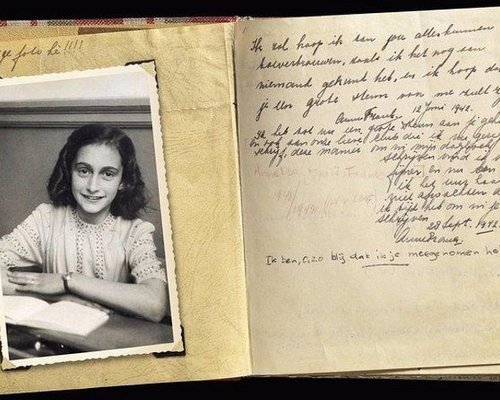 foto hè!!!!
Ik zal hoop ik aan jou alles kunnen
toevertrouwen, zoals ik het nog aan
niemand gekund heb, en ik hoop dat
je een grote steun voor me zult
Anne Frank. 12 Juni 1942.
Ik heb tot nu een grote steun aan je
en ook aan onze lieve club die ik nu
schrijf, deze manier om in mijn dagboek
schrijven vind ik
fijner en nu kan
ik het uur haast
niet afwachten
ik tijd heb om in je
schrijven
28 Sept. 1942.
Anne Frank.
Ik ben, O, zo blij dat ik je meegenomen heb